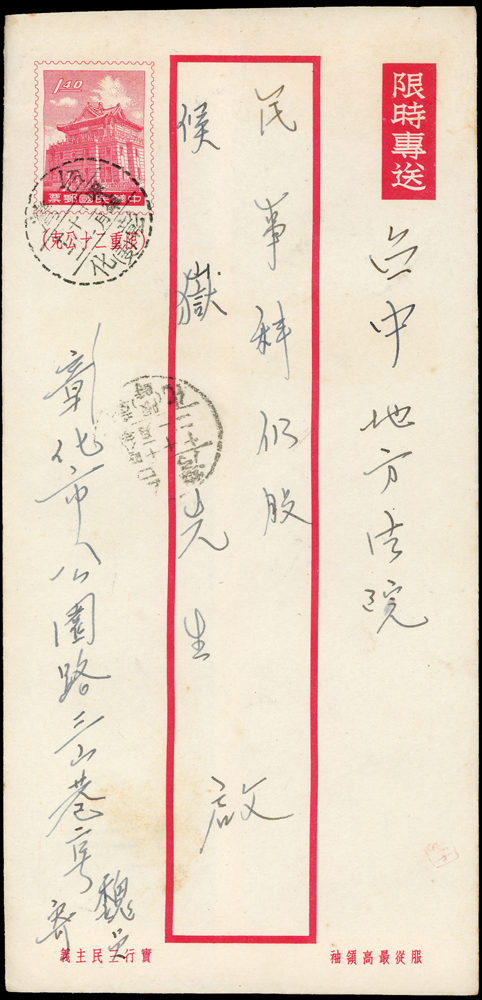 限時專送
台中地方法院
民事科仍股
侯嶽先生 啟
1.40
票郵國民華中
(限重二十公克)
彰化市公園路三山巷二号
魏
寄
服從最高領袖
實行三民主義